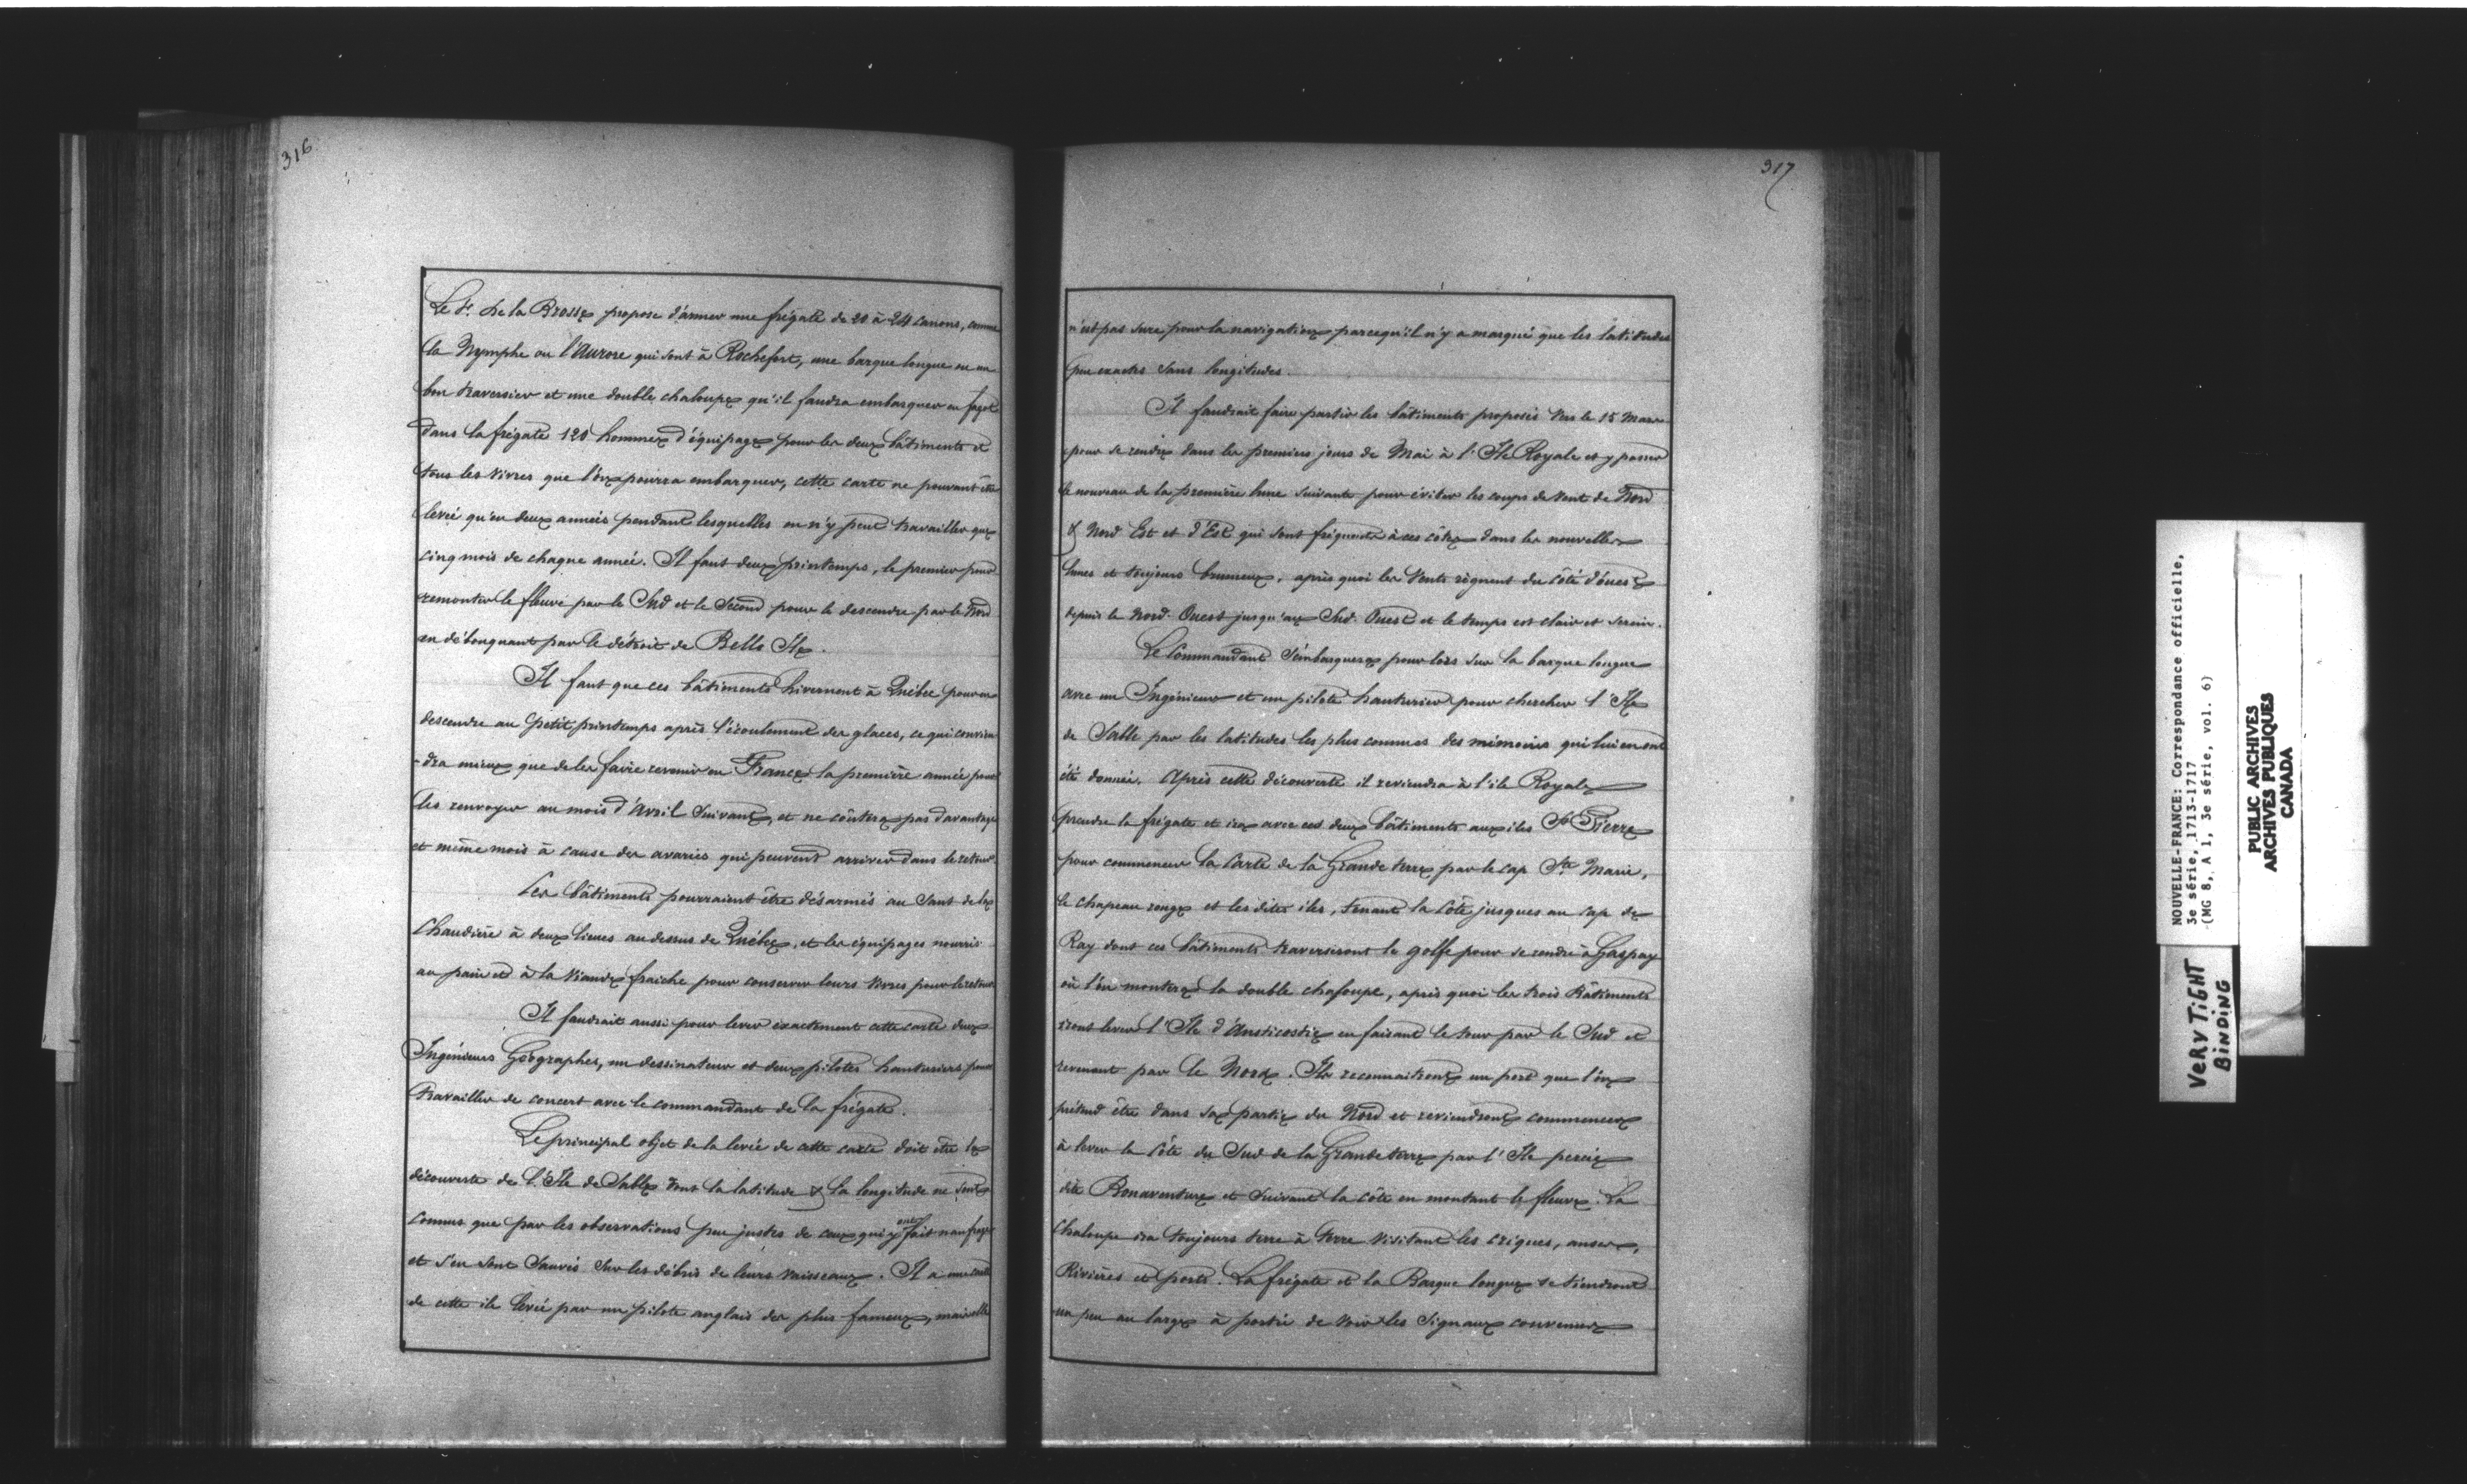 316
Le Sr. de la Brosse propose d'armer une frégate de 20 à 24 canons, comme
la Nymphe ou l'Aurore qui sont à Rochefort, une barque longue ou un
bon traversier et une double chaloupe qu'il faudra embarquer en fagot
dans la frégate 120 hommes d'équipage pour les deux bâtiments et
tous les vivres que l'on pourra embarquer, cette carte ne pouvant être
levée qu'en deux années pendant lesquelles on n'y peut travailler que
cinq mois de chaque année. Il faut deux printemps, le premier pour
remonter le fleuve par le Sud et le Second pour le descendre par le Nord
en débouquant par le détroit de Belle Ile.
Il faut que ces bâtiments hivernent à Québec pour en
descendre au petit printemps après l'écoulement des glaces, ce qui convien
-dra mieux que de les faire revenir en France la première année pour
les renvoyer au mois d'Avril Suivant, et ne coûtera pas davantage
et même mois à cause des avaries qui peuvent arriver dans le retour.
Les bâtiments pourraient être désarmés au Saut de la
Chaudière à deux lieues au dessus de Québec, et les équipages nourris
au pain et à la viande fraiche pour conserver leurs vivres pour le retour
Il faudrait aussi pour lever exactement cette carte deux
Ingénieurs Géographes, un dessinateur et deux pilotes hauturiers pour
travailler de concert avec le commandant de la frégate.
Le principal objet de la levée de cette carte doit être la
découverte de l'Ile de Sable dont la latitude & la longitude ne sont
connus que par les observations peu justes de ceux qui y ont fait naufrage
et s'en sont Sauvés Sur les débris de leurs vaisseaux. Il a une carte
de cette ile levée par un pilote anglais des plus fameux, mais elle
317
n'est pas sure pour la navigation parcequ'il n'y a marqué que les latitudes
peu exactes sans longitudes.
Il faudrait faire partir les bâtiments proposés vers le 15 Mars
pour se rendre dans les premiers jours de Mai à l'Ile Royale et y passer
le nouveau de la première lune suivante pour éviter les coups de vent de Nord
& Nord Est et d'Est qui sont fréquents à ces côtes dans les nouvelles
lunes et toujours brumeux, après quoi les vents règnent du côté d'ouest
depuis le Nord-Ouest jusqu'au Sud-Ouest et le temps est clair et serein.
Le Commandant S'embarquera pour lors sur la barque longue
avec un Ingénieur et un pilote hauturier pour chercher l'Ile
de Sable par les latitudes les plus connues des mémoires qui lui en ont
été donnés. Après cette découverte il reviendra à l'ile Royale
prendre la frégate et ira avec ces deux bâtiments aux iles St Pierre
pour commencer la Carte de la Grande terre par le cap Ste Marie,
le chapeau rouge et les dites iles, tenant la Côte jusques au Cap de
Ray dont ces bâtiments traverseront le golfe pour se rendre à Gaspay
où l'on montera la double chaloupe, après quoi les trois Bâtiments
iront lever l'Ile d'Anticostie en faisant le tour par le Sud et
revenant par le Nord. Ils reconnaitront un port que l'on
prétend être dans sa partie du Nord et reviendront commencer
à lever la Côte du Sud de la Grande terre par l'Ile percée
dite Bonaventure et Suivant la côte en montant le fleuve. La
Chaloupe ira toujours terre à terre visitant les criques, anses,
Rivières et ports. La frégate et la Barque longue se tiendront
un peu au large à portée de voir les Signaux convenus
NOUVELLE-FRANCE: Correspondance officielle,
3e série, 1713-1717
(MG 8, A 1, 3e série, vol. 6)
PUBLIC ARCHIVES
ARCHIVES PUBLIQUES
CANADA
VERY TIGHT
BINDING